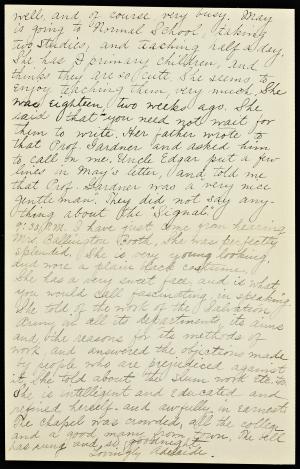 well, and, of course, very busy. May
is going to Normal School, taking
two studies, and teaching half a day.
She has 2 primary children, and
thinks they are so cute. She seems to
enjoy teaching them very much. She
was eighteen two weeks ago. She
said that "you need not wait for
them to write. Her father wrote to
that Prof. Gardner and asked him
to call on me. Uncle Edgar put a few
lines in May's letter, and told me
that Prof. Gardner was a very nice
gentleman. They did not say any-
thing about the "Signal."
9:30 P.M. I have just come from hearing
Mrs. Ballington Booth. She was perfectly
splendid. She is very young looking,
and wore a plain black costume.
She has a very sweet face, and is what
you would call fascinating in speaking.
She told of the work of the Salvation
Army in all its departments, its aims
and the reasons for its methods of
work and answered the objections made
by people who are prejudiced against
it. She told about the slum work etc. too.
She is intelligent and educated and
refined herself, and awfully in earnest.
The chapel was crowded, all the college
and a good many from town. The bell
has rung and so goodnight.
Lovingly Adelaide.